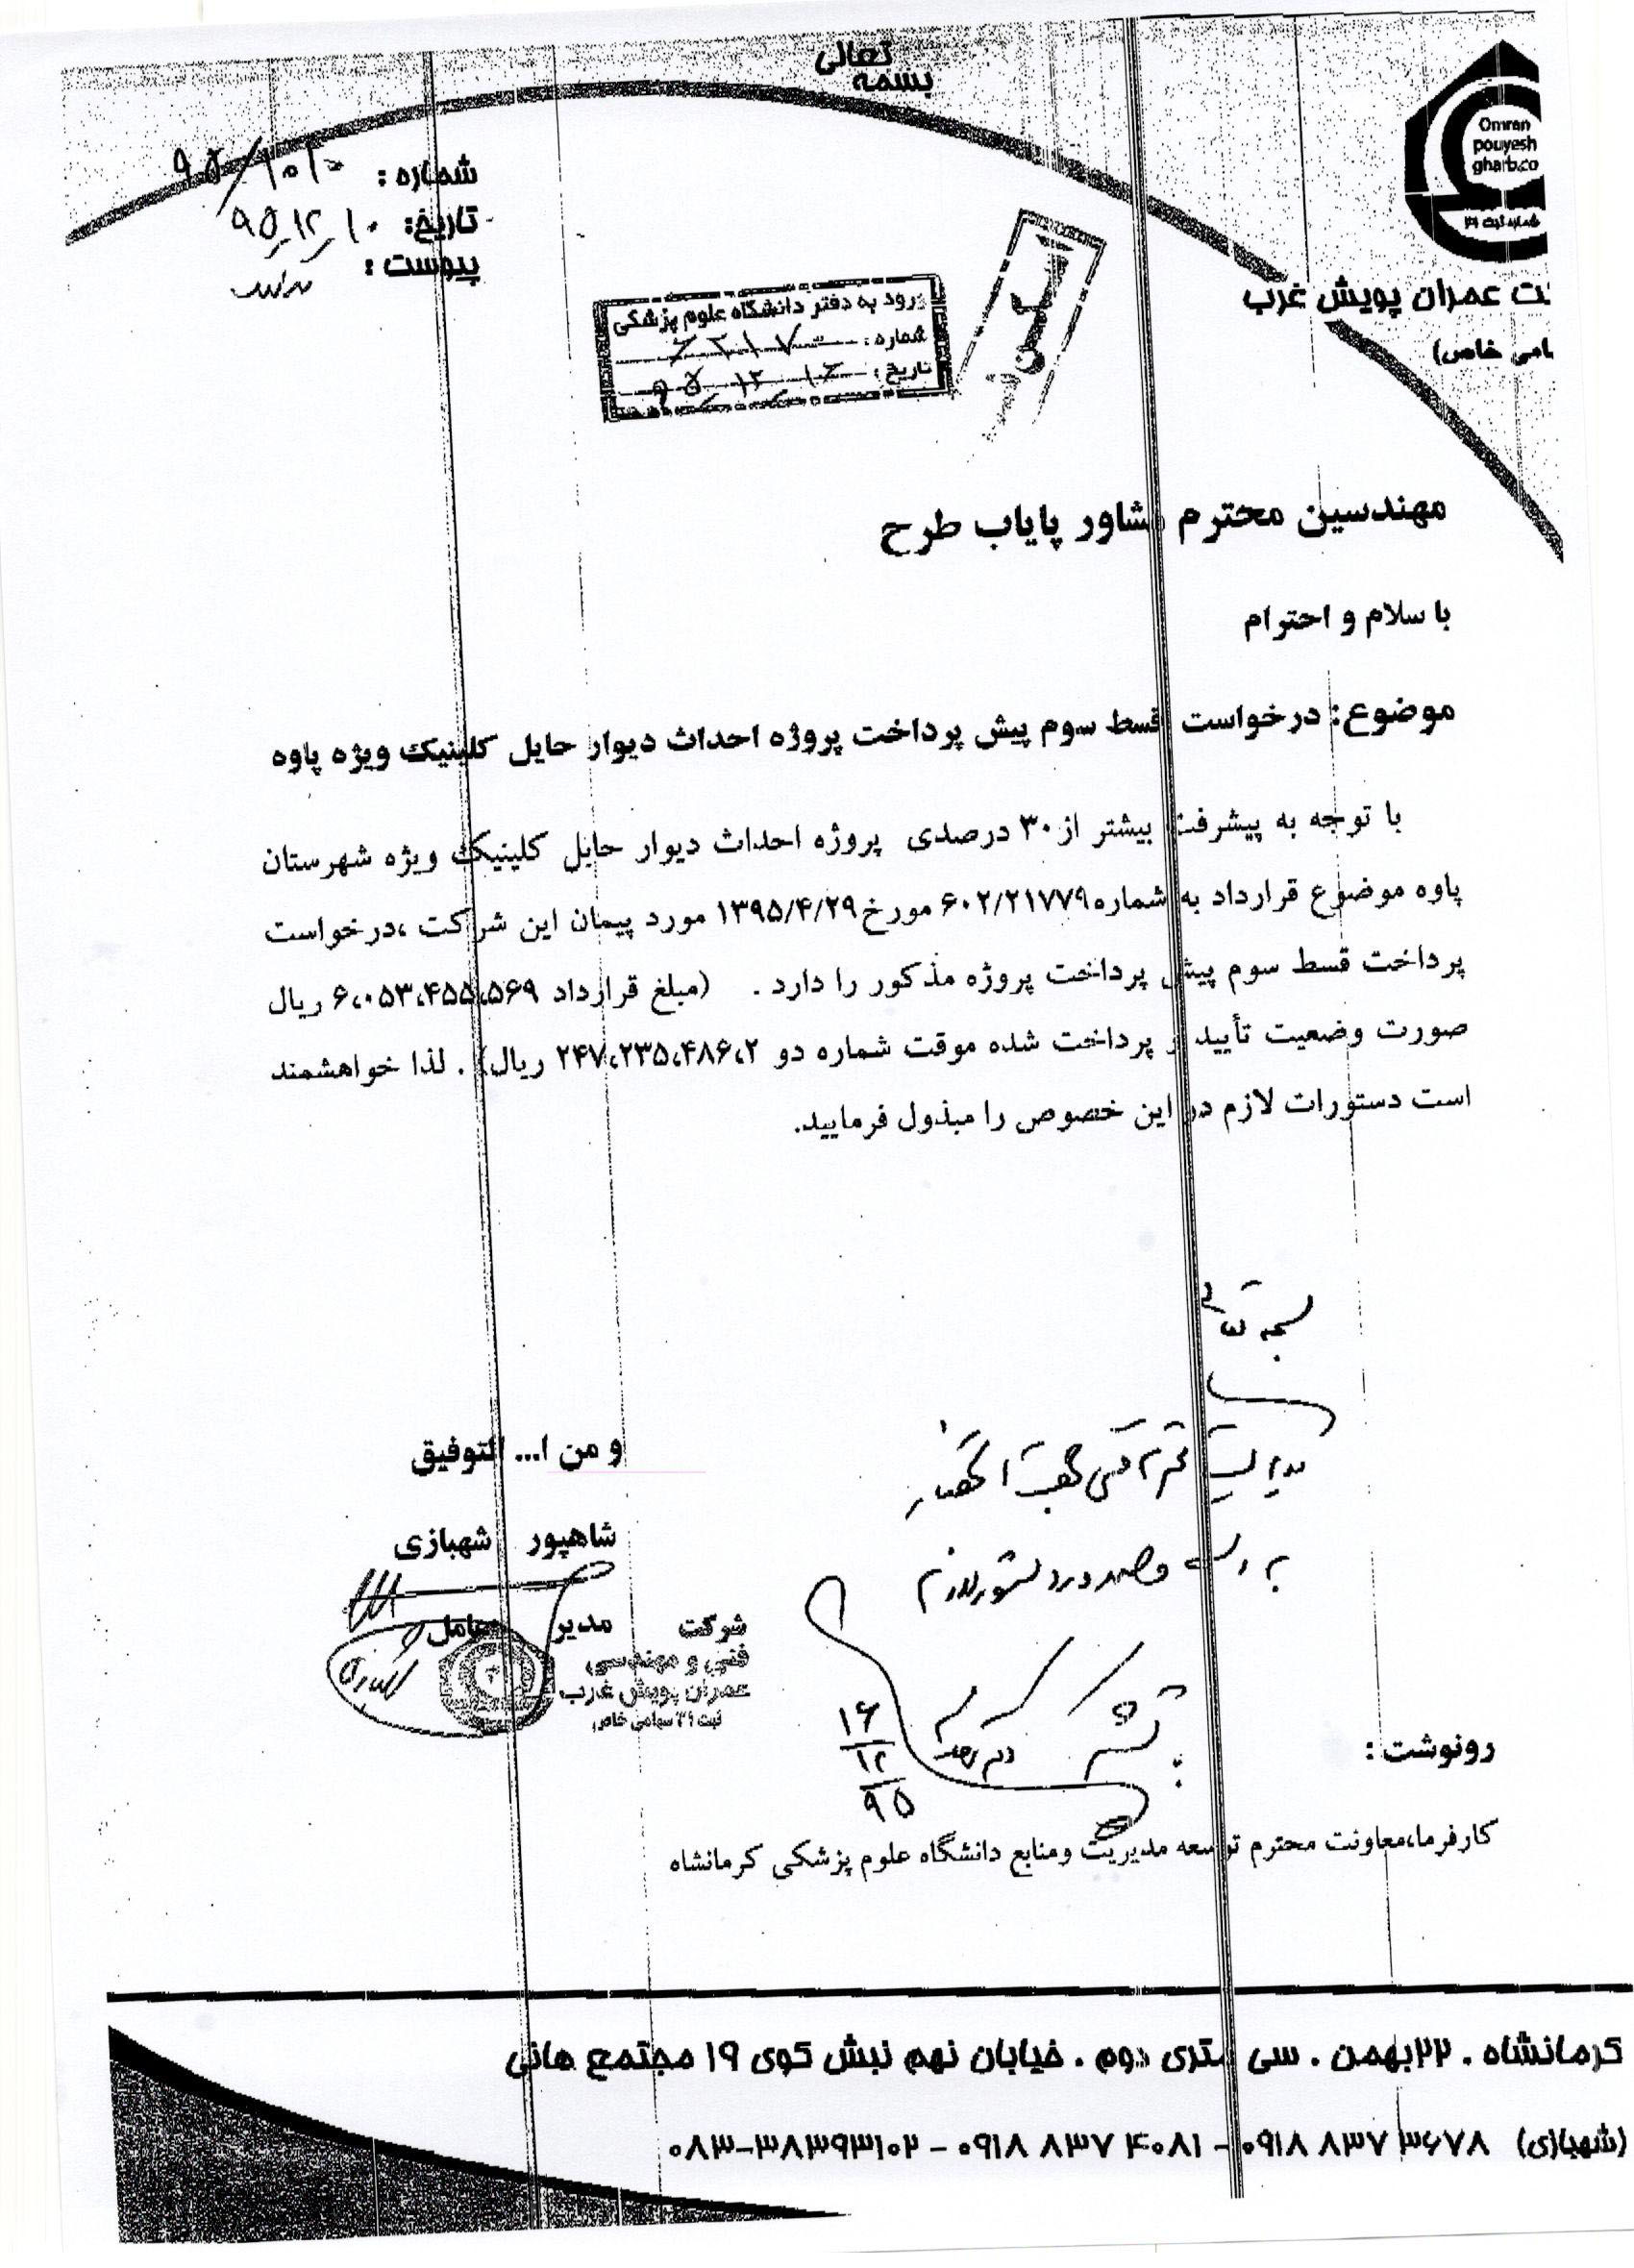 بسمه تعالی
Omran
pouyesh
gharb.co
شماره ثبت ۳۱
ت عمران پویش غرب
امی خاص)
شماره : ۹۵/۱۰۱۰
تاریخ: ۹۵/۱۲/۱۰
پیوست : ندارد
ورود به دفتر دانشگاه علوم پزشکی
شماره :
تاریخ : ۹۵ ۱۲ ۱۶
مهندسین محترم مشاور پایاب طرح
با سلام و احترام
موضوع: درخواست قسط سوم پیش پرداخت پروژه احداث دیوار حایل کلینیک ویژه پاوه
با توجه به پیشرفت بیشتر از ۳۰ درصدی پروژه احداث دیوار حایل کلینیک ویژه شهرستان
پاوه موضوع قرارداد به شماره ۶۰۲/۲۱۷۷۹ مورخ ۱۳۹۵/۴/۲۹ مورد پیمان این شرکت ،درخواست
پرداخت قسط سوم پیش پرداخت پروژه مذکور را دارد . (مبلغ قرارداد ۶،۰۵۳،۴۵۵،۵۶۹ ریال
صورت وضعیت تأیید و پرداخت شده موقت شماره دو ۲۴۷،۲۳۵،۴۸۶،۲ ریال) . لذا خواهشمند
است دستورات لازم در این خصوص را مبذول فرمایید.
بسمه تعالی
و من ا... التوفیق
شاهپور شهبازی
مدیر عامل
شرکت
فنی و مهندسی
عمران پویش غرب
ثبت ۳۱ سهامی خاص
۱۶
۱۲
۹۵
رونوشت :
کارفرما،معاونت محترم توسعه مدیریت ومنابع دانشگاه علوم پزشکی کرمانشاه
کرمانشاه . ۲۲بهمن . سی متری دوم . خیابان نهم نبش کوی ۱۹ مجتمع هانی
(شهبازی) ۰۹۱۸ ۸۳۷ ۳۶۷۸ - ۰۹۱۸ ۸۳۷ ۴۰۸۱ - ۰۸۳-۳۸۳۹۳۱۰۲